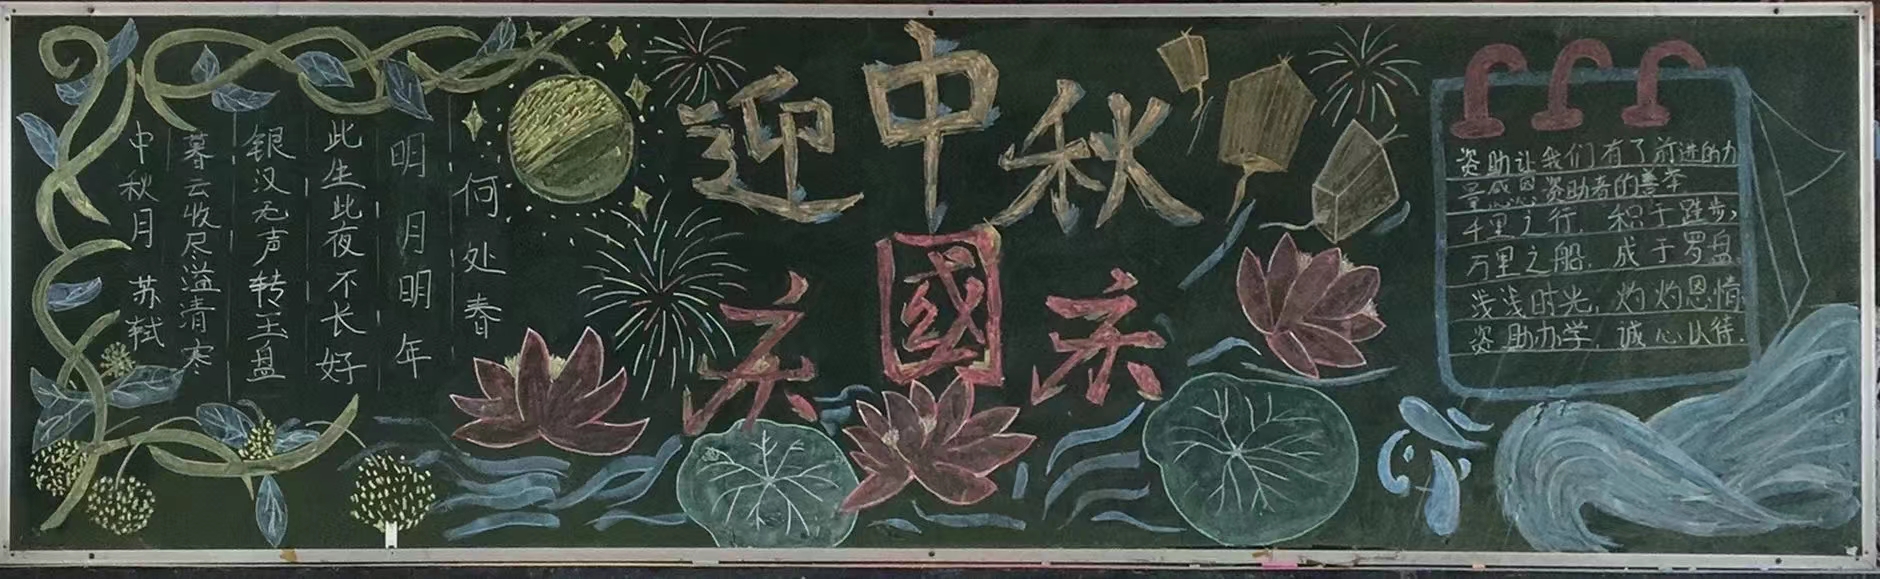 中秋月 苏轼
暮云收尽溢清寒
银汉无声转玉盘
此生此夜不长好
明月明年
何处春
迎中秋
庆國庆
资助让我们有了前进的力
量感恩资助者的善举
千里之行,积于跬步,
万里之船,成于罗盘
浅浅时光,灼灼恩情
资助办学,诚心以待.